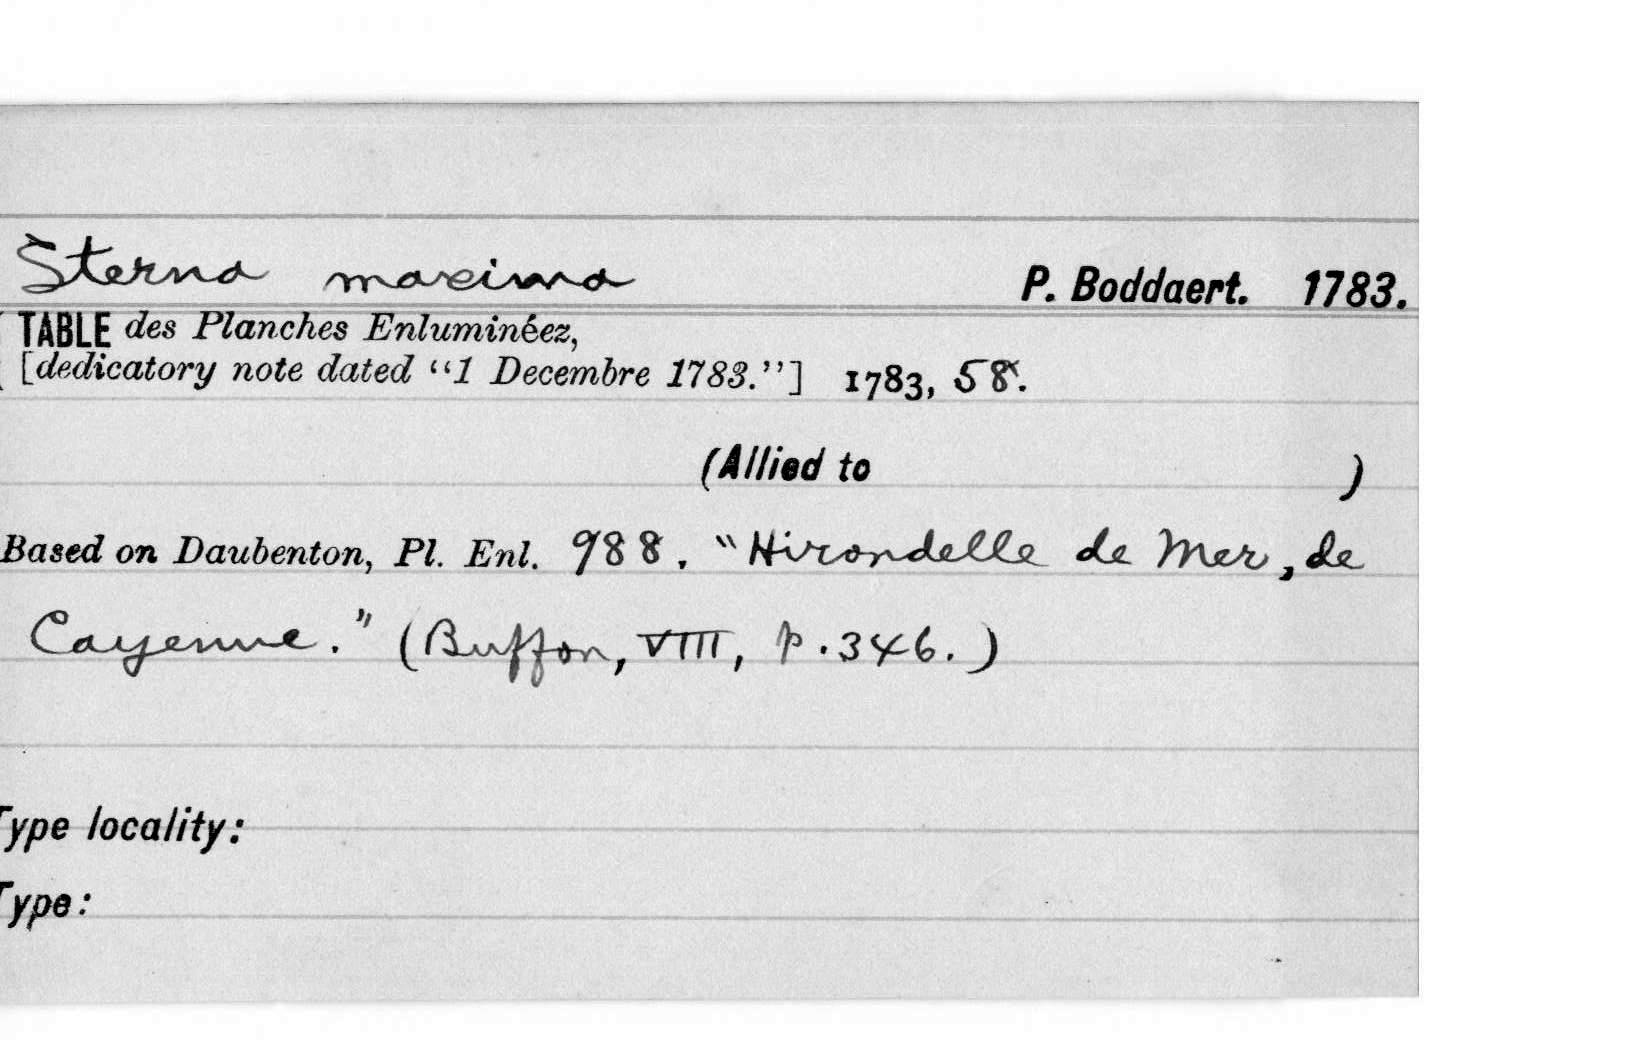 Sterna maxima P. Boddaert. 1783.
TABLE des Planches Enluminéez,
[dedicatory note dated “1 Decembre 1783.”] 1783, 58.
(Allied to )
Based on Daubenton, Pl. Enl. 988. "Hirondelle de Mer, de
Cayenne." (Buffon, VIII, p. 346.)
Type locality:
Type: